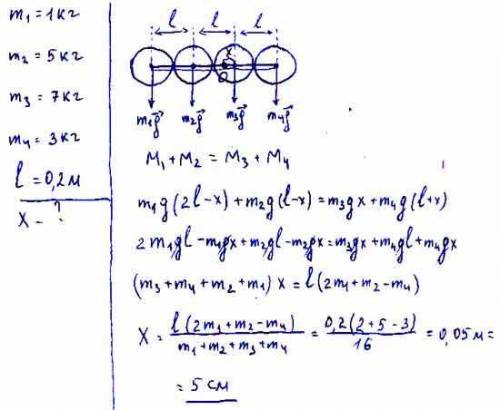 m₁ = 1 кг
m₂ = 5 кг
m₃ = 7 кг
m₄ = 3 кг
l = 0,2 м
x - ?
l l l
x
O
m₁g⃗ m₂g⃗ m₃g⃗ m₄g⃗
M₁ + M₂ = M₃ + M₄
m₁g(2l-x) + m₂g(l-x) = m₃gx + m₄g(l+x)
2m₁gl - m₁gx + m₂gl - m₂gx = m₃gx + m₄gl + m₄gx
(m₃ + m₄ + m₂ + m₁) x = l(2m₁ + m₂ - m₄)
x = l(2m₁ + m₂ - m₄) / (m₁ + m₂ + m₃ + m₄) = 0,2(2+5-3) / 16 = 0,05 м =
= 5 см